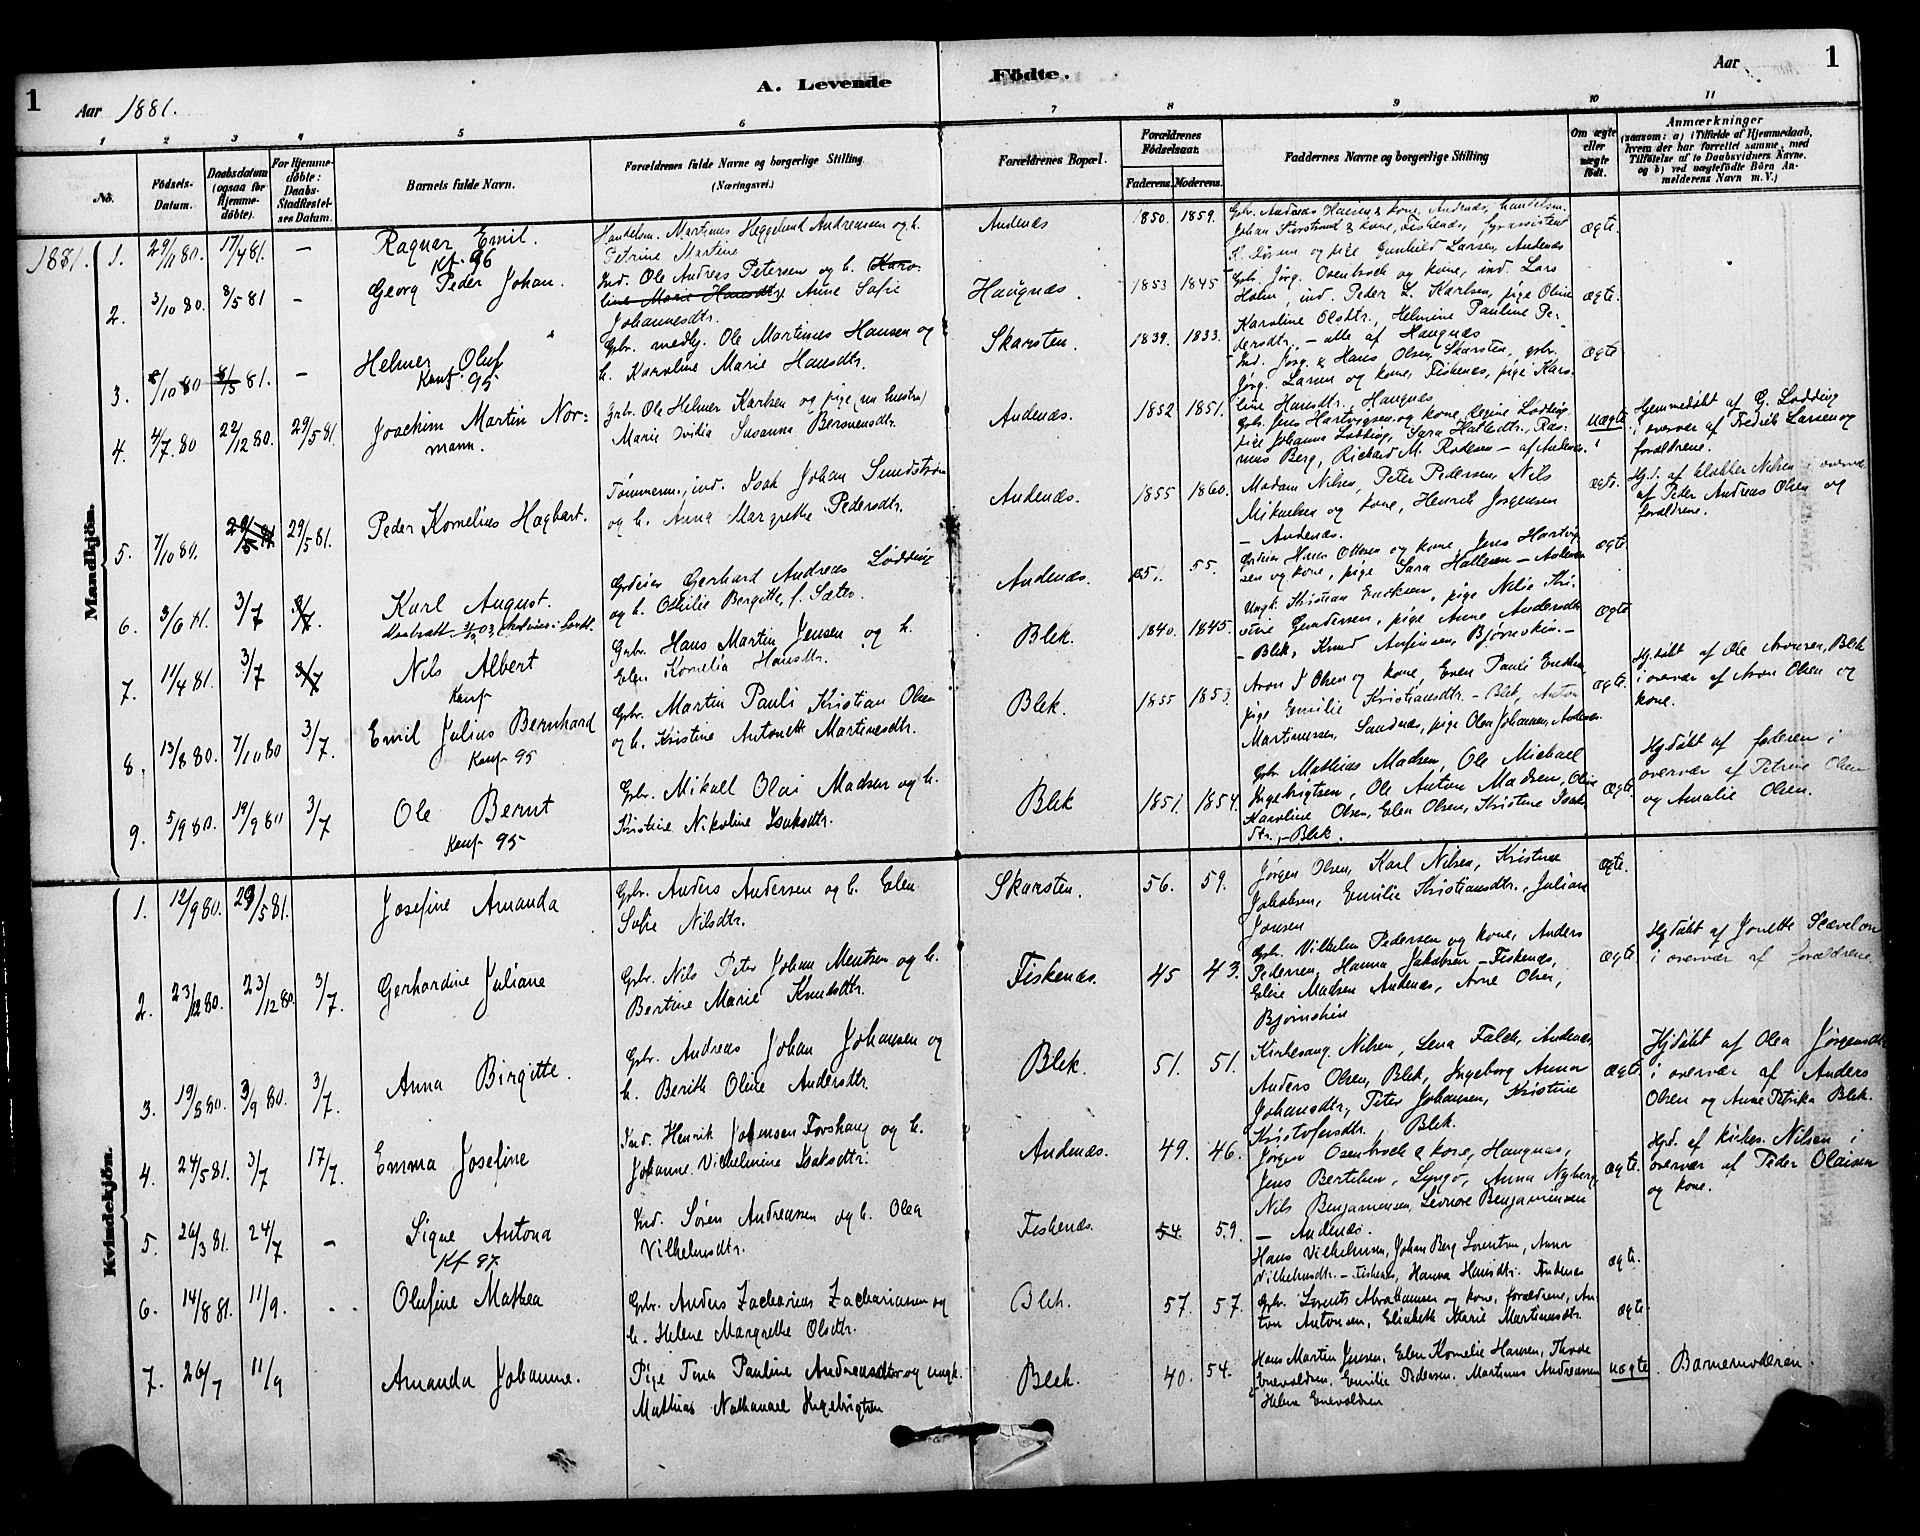 1
A. Levende
Födte.
Aar
1
Aar 1881.
1
2
3
4
5
6
7
8
9
10
11
No.
Födsels-
Datum.
Daabsdatum
(ogsaa for
Hjemme-
döbte).
For Hjemme-
döbte:
Daabs-
Stadfæstel-
ses Datum.
Barnets fulde Navn.
Forældrenes fulde Navne og borgerlige Stilling.
(Næringsvei.)
Forældrenes Bopæl.
Forældrenes
Födselsaar.
Faderens.
Moderens.
Faddernes Navne og borgerlige Stilling
Om ægte
eller
uægte
födt.
Anmærkninger
(saasom: a) i Tilfælde af Hjemmedaab,
hvem der har forrettet samme, med
Tilföielse af to Daabsvidners Navne,
og b) ved uægtefödte Börn An-
melderens Navn m. V.)
1881.
Mandkjön.
1. 29/11 80. 17/4 81. –
Ragnar Emil.
Kf. 96
Handelsm. Martinus Heggelund Andreassen og h.
Petrine Martine
Andenæs
1850. 1859.
Gbr. Andreas Hansen & kone, Andenæs, handelsm.
Johan & kone, Fiskenæs, fyrassistent
og pige Gunhild Larsen, Andenæs
ægte.
2. 3/10 80. 8/5 81 –
Georg Peder Johan.
Ind. Ole Andreas Petersen og h. Karo-
line Marie Hansdtr. Anne Sofie
Johannesdtr.
Haugnæs.
1853 1845
Gbr. Jørg. Osenbrock og kone, ind. Lars
Holm, ind. Peder L. Karlsen, pige Oline
Karoline Olsdtr., Helmine Pauline Pe-
dersdtr. – alle af Haugnæs
ægte.
3. 8/10 80 8/5 81. –
Helmer Oluf
Konf. 95
Gbr. medhj. Ole Martinus Hansen og
h. Karoline Marie Hansdtr.
Skarsten.
1839. 1833.
Ind. Jørg. & Hans Olsen, Skarsten, gbr.
Jørg. Larsen og kone, Fiskenæs, pige Karo-
line Hansdtr., Haugnæs
ægte
4. 4/7 80 22/12 80. 29/5 81.
Joachim Martin Nor-
mann.
Gbr. Ole Helmer Karlsen og pige (nu hustru)
Marie Ovidia Susanna Berntsdtr.
Andenæs.
1852 1851.
Gbr. Jens Hartvigsen og kone, Regine Lødding,
pige Johanna Lødding, Sara Hallesdtr., Ras-
mus Berg, Richard M. Rodesen – af Andenæs.
uægte.
Hjemmedøbt af G. Lødding
i overvær af Fredrik Larsen og
forældrene.
5. 7/10 80. 29/5 81 29/5 81.
Peder Kornelius Hagbart.
Tømmerm., ind. Isak Johan Sundstrøm
og h. Anna Margrethe Pedersdtr.
Andenæs.
1855 1860.
Madam Nilsen, Peter Pedersen, Nils
Mikaelsen og kone, Henrik Jørgensen
– Andenæs.
ægte.
Hjd. af klokker Nilsen i overvær
af Peter Andreas Olsen og
forældrene.
6. 3/6 81. 3/7 3/7.
Karl August.
Gbdeier Gerhard Andreas Lødding
og h. Othilie Bergitte, f. Sæter
Andenæs.
1851. 55.
Gbdeier Hans Ottesen og kone, Jens Hartvig-
sen og kone, pige Sara Hallesen – Andenæs
ægte
7. 11/4 81. 3/7 3/7
Nils Albert
Konf
Gbr. Hans Martin Jensen og h.
Elen Kornelia Hansdtr.
Blek.
1840. 1845.
Ungk. Kristian Eriksen, pige Nilia Kri-
stine Gundersen, pige Anne Andersdtr.
– Blek, Knud Arfinsen, Bjørnskin. –
ægte
8. 13/8 80. 7/10 80 3/7.
Emil Julius Bernhard
Konf 95
Gbr. Martin Pauli Kristian Olsen
og h. Kristine Antonette Martinesdtr.
Blek.
1855 1853.
Aron P Olsen og kone, Even Pauli
pige Emilie Kristiansdtr. – Blek, Anton
Martinussen, Sandnæs, pige Olea Johansen, Andenæs.
ægte.
Hjdøbt af Ole Aronsen, Blek
i overvær af Aron Olsen og
kone.
9. 5/9 80. 19/9 80 3/7
Ole Bernt
Konf 95
Gbr. Mikael Olai Madsen og h.
Kristine Nikoline Isaksdtr.
Blek
1851. 1854.
Gbr. Mathias Madsen, Ole Michael
Ingebrigtsen, Ole Anton Madsen, Oline
Karoline Olsen, Elen Olsen, Kristine Isak-
dtr., – Blek.
ægte.
Hjdøbt af faderen i
overvær af Petrine Olsen
og Amalie Olsen.
Kvindekjön.
1. 12/9 80. 29/5 81.
Josefine Amanda
Gbr. Anders Andersen og h. Elen
Sofie Nilsdtr.
Skarsten.
56. 59.
Jørgen Olsen, Karl Nilsen, Kristine
Jakobsen, Emilie Kristiansdtr., Julian
Jonsen
ægte.
2. 23/12 80. 23/12 80. 3/7.
Gerhardine Juliane
Gbr. Nils Peter Johan Mentsen og h.
Bertine Marie Knudsdtr.
Fiskenæs.
45 43.
Gbr. Vilhelm Pedersen og kone, Anders
Pedersen, Hanna Jakobsen – Fiskenæs,
Elise Madsen Andenæs, Arne Olsen,
Bjørnskin
ægte
Hjdøbt af Jonette
i overvær af forældrene.
3. 19/8 80. 3/9 80. 3/7.
Anna Birgitte.
Gbr. Andreas Johan Johansen og
h. Berith Oline Andersdtr.
Blek.
51. 51.
Kirkesang. Nilsen, Lena Falck, Andenæs,
Anders Olsen, Blek, Ingeborg Anna
Johansdtr., Peter Johansen, Kristine
Kristofersdtr. Blek.
ægte
Hjdøbt af Olea Jørgensdtr.
i overvær af Anders
Olsen og Anne Petrika Blek.
4. 24/5 81. 3/7 17/7.
Emma Josefine
Ind. Henrik Johnsen Forshaug og h.
Johanne Vilhelmine Isaksdtr.
Andenæs.
49. 46.
Jørgen Osenbrock & kone, Haugnæs,
Jens Bertelsen, Lyngø, Anna Nyberg
Nils Benjaminsen, Leonore Benjaminsen
– Andenæs.
ægte.
Hjd. af kirkes. Nilsen i
overvær af Peder Olaisen
og kone.
5. 26/3 81. 24/7 –
Signe Antona
Kf 97.
Ind. Søren Andreassen og h. Olea
Vilhelmsdtr.
Fiskenæs.
54 59.
Hans Vilhelmsen, Johan Berg Lorentsen, Anna
Vilhelmsdtr. – Fiskenæs, Hanna Hansdtr. Andenæs
ægte.
6. 14/8 81. 11/9. . .
Olufine Mathea
Gbr. Anders Zacharias Zachariassen og
h. Helene Margrethe Olsdtr.
Blek.
57. 57.
Gbr. Lorents Abrahamsen og kone, forældrene, An-
ton Antonsen, Elisabeth Marie Martinusdtr.
ægte
7. 26/7 11/9
Amanda Johanne.
Pige Tina Pauline Andreasdtr og ungk.
Mathias Nathanael Ingebrigtsen
Blek.
40. 54.
Hans Martin Jensen, Elen Kornelie Hansen, Thode
Enevoldsen, Emilie Pedersen, Martinus Andreassen
& Helene Enevoldsen
uægte.
Barnemoderen.